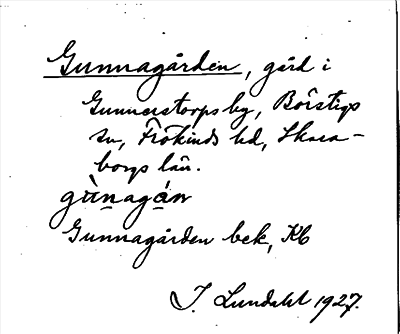 Gunnagården, gård i
Gunnerstorps by, Börstigs
sn, Frökinds hd, Skara-
borgs län.
gùnagán
Gunnagården bek, Kb
I. Lundahl 1927.